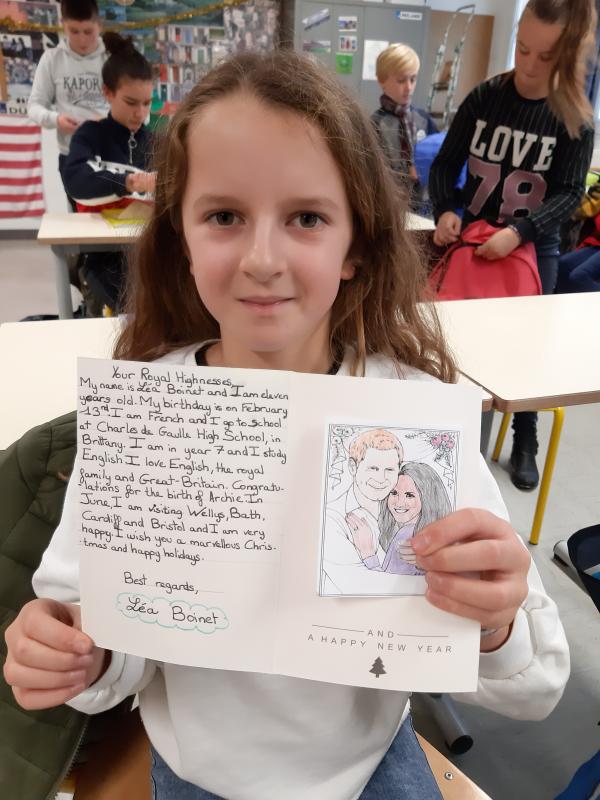 Your Royal Highnesses,
My name is Léa Boinet and I am eleven
years old. My birthday is on February
13rd I am French and I go to school
at Charles de Gaulle High School, in
Brittany. I am in year 7 and I study
English. I love English, the royal
family and Great-Britain. Congratu-
lations for the birth of Archie. In
June, I am visiting Wellys, Bath,
Cardiff and Bristol and I am very
happy. I wish you a marvellous Chris-
tmas and happy holidays.
Best regards,
Léa Boinet
AND
A HAPPY NEW YEAR
KAPORAL
LOVE
78